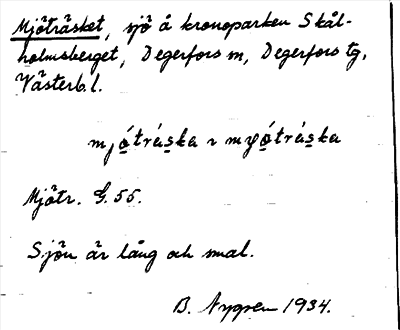 Mjöträsket, sjö å kronoparken Skål-
holmsberget, Degerfors sn, Degerfors tg,
Västerb. l.
mjótràska ɿ myótràska
Mjötr. G. 55.
Sjön är lång och smal.
B. Nygren 1934.